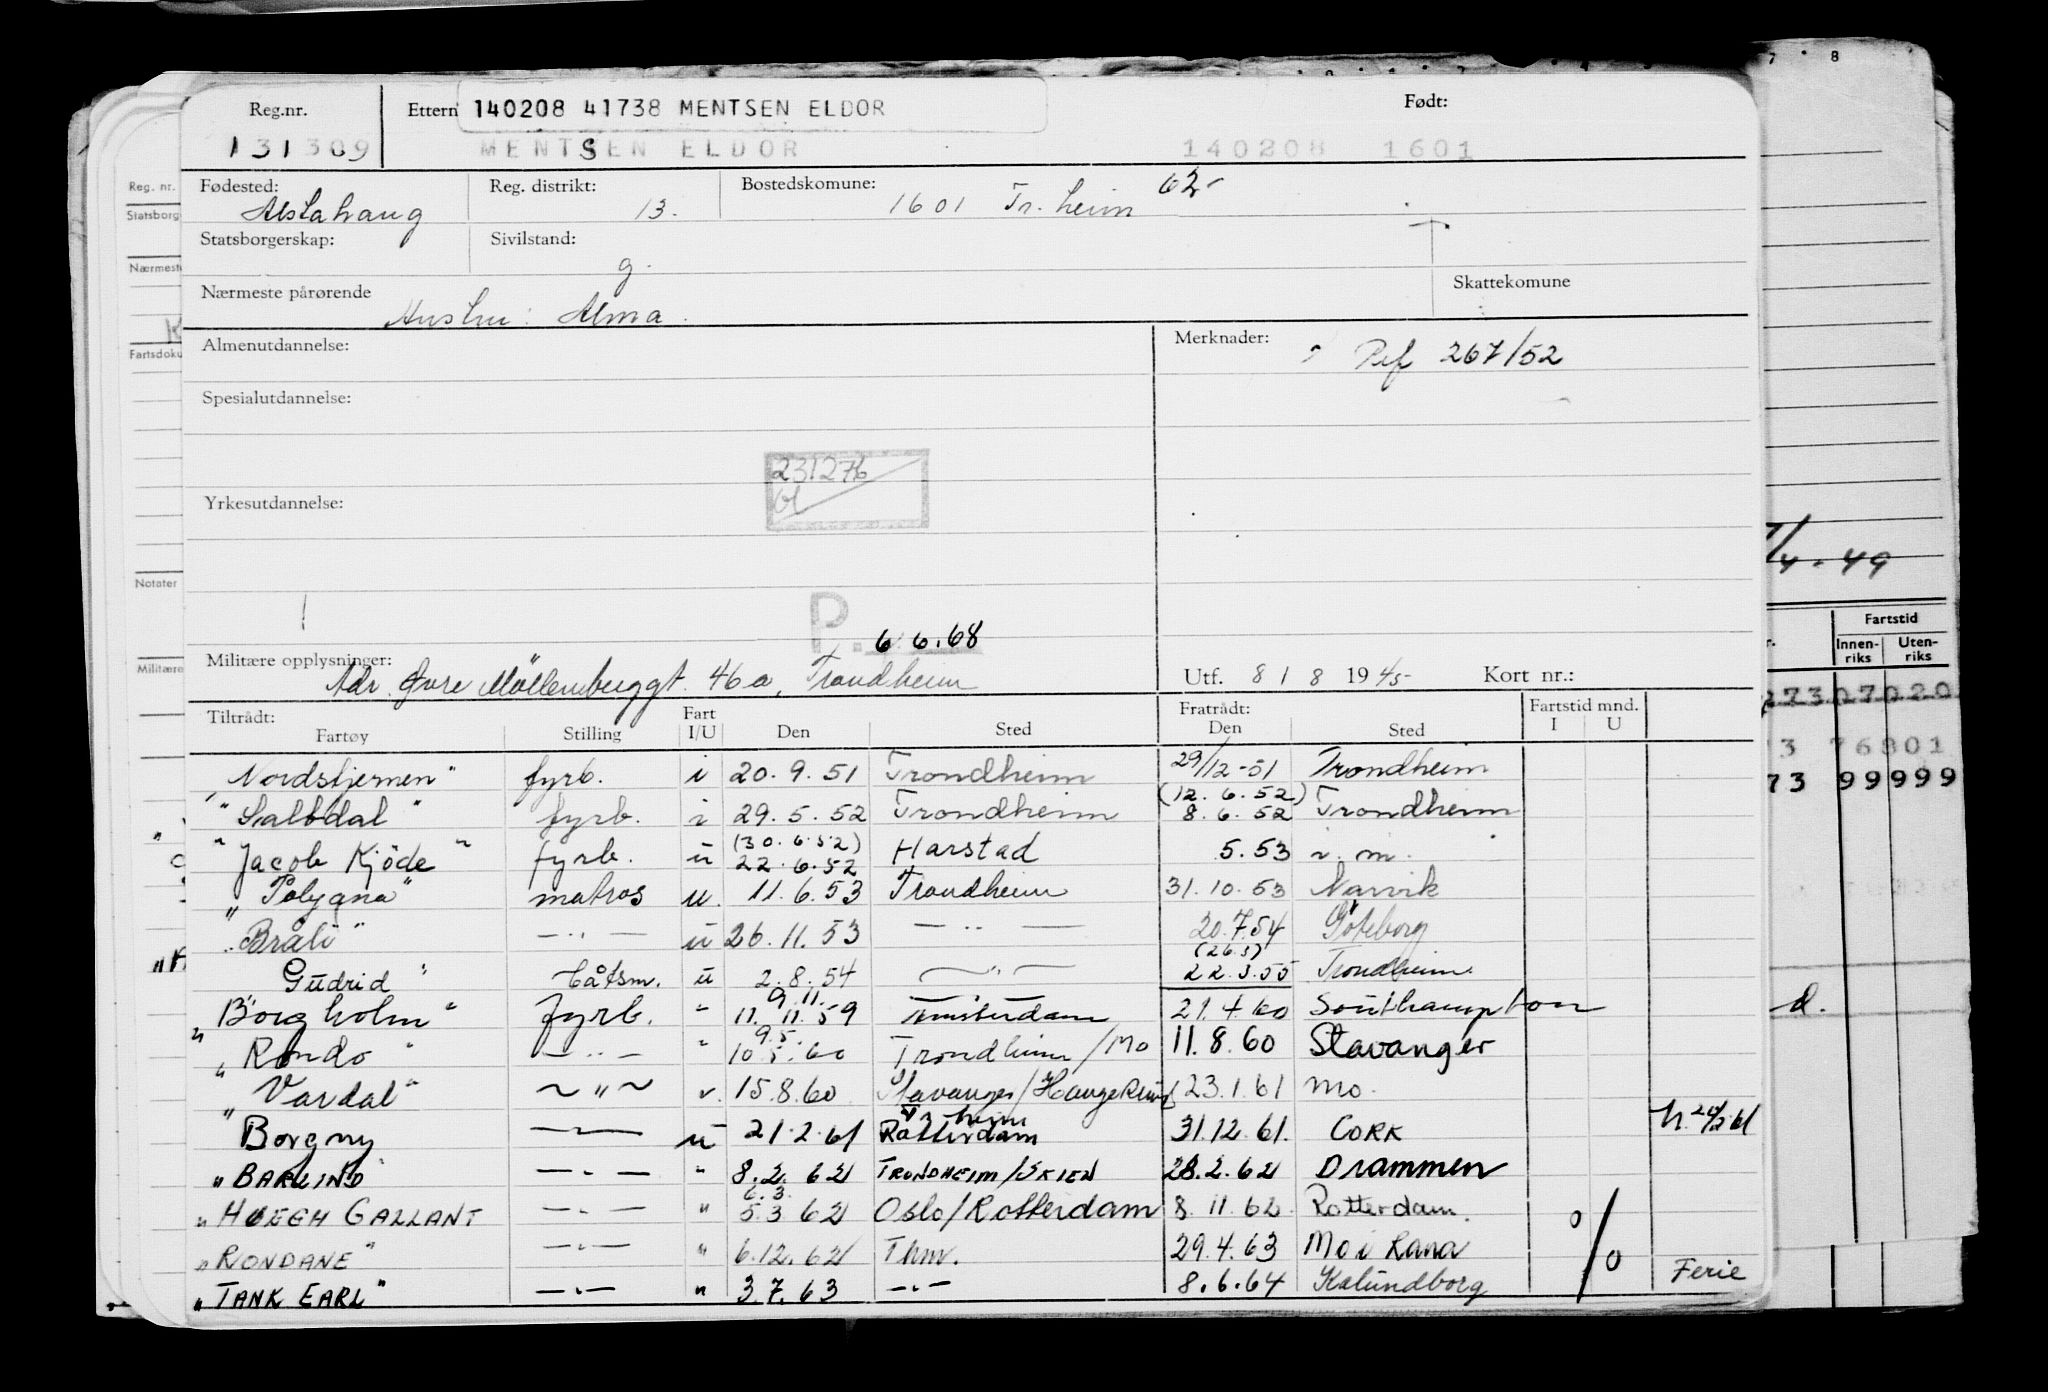 7 8
Reg.nr. Ettern 140208 41738 MENTSEN ELDOR Født:
131309 MENTSEN ELDOR 140208 1601
Fødested: Reg. distrikt: Bostedskomune: 62-
Alstahaug 13. 1601 Tr.heim
Statsborgerskap: Sivilstand:
g.
Nærmeste pårørende Skattekomune
Hustru: Alma.
Almenutdannelse: Merknader:
Pef 267/52
Spesialutdannelse:
231276
Yrkesutdannelse:
P. 6 6.68
Militære opplysninger: Utf. 8 / 8 1945- Kort nr.:
Adr. Øvre Möllenberggt. 46a, Trondheim
Tiltrådt: Fart Fratrådt: Fartstid mnd.
Fartøy Stilling I/U Den Sted Den Sted I U
"Nordstjernen" fyrb. i 20.9.51 Trondheim 29/12-51 Trondheim
(12.6.52)
"Saltdal" fyrb. i 29.5.52 Trondheim 8.6.52 Trondheim
(30.6.52)
"Jacob Kjöde" fyrb. u 22.6.52 Harstad 5.53 i.m.
"Polycana" matros u. 11.6.53 Trondheim 31.10.53 Narvik
"Bråli" — " — u 26.11.53 — " — 20.7.54 Göteborg
(26.3)
Gudrid" båtsm. u 2.8.54 — " — 22.3.55 Trondheim
9.11.
"Borgholm" fyrb. " 11.11.59 Amsterdam 21.4.60 Southampton
9.5.
"Rondo" — " — " 10.5.60 Trondheim/Mo 11.8.60 Stavanger
"Vardal" ~ " ~ ". 15.8.60 Stavanger/Haugesund 23.1.61 Mo.
Tr heim
"Borgny — " — u 21.2.61 Rotterdam 31.12.61. CORK
"BARLIND" — " — " 8.2.62 TRONDHEIM/SKIEN 28.2.62 Drammen
6.3.
"HØEGH GALLANT — " — " 5.3 62 Oslo/Rotterdam 8.11.62 Rotterdam. 0/
"RONDANE" — " — " 6.12.62 Thm. 29.4.63 Mo i Rana /0
"TANK EARL" — " — " 3.7.63 — " — 8.6.64 Kalundborg Ferie
Reg. nr.
Statsborg
Nærmeste
Fartsdoku
Notater
Militære
/4.49
Fartstid
Innen-riks Uten-riks
27307020
3 76801
73 99999
d.